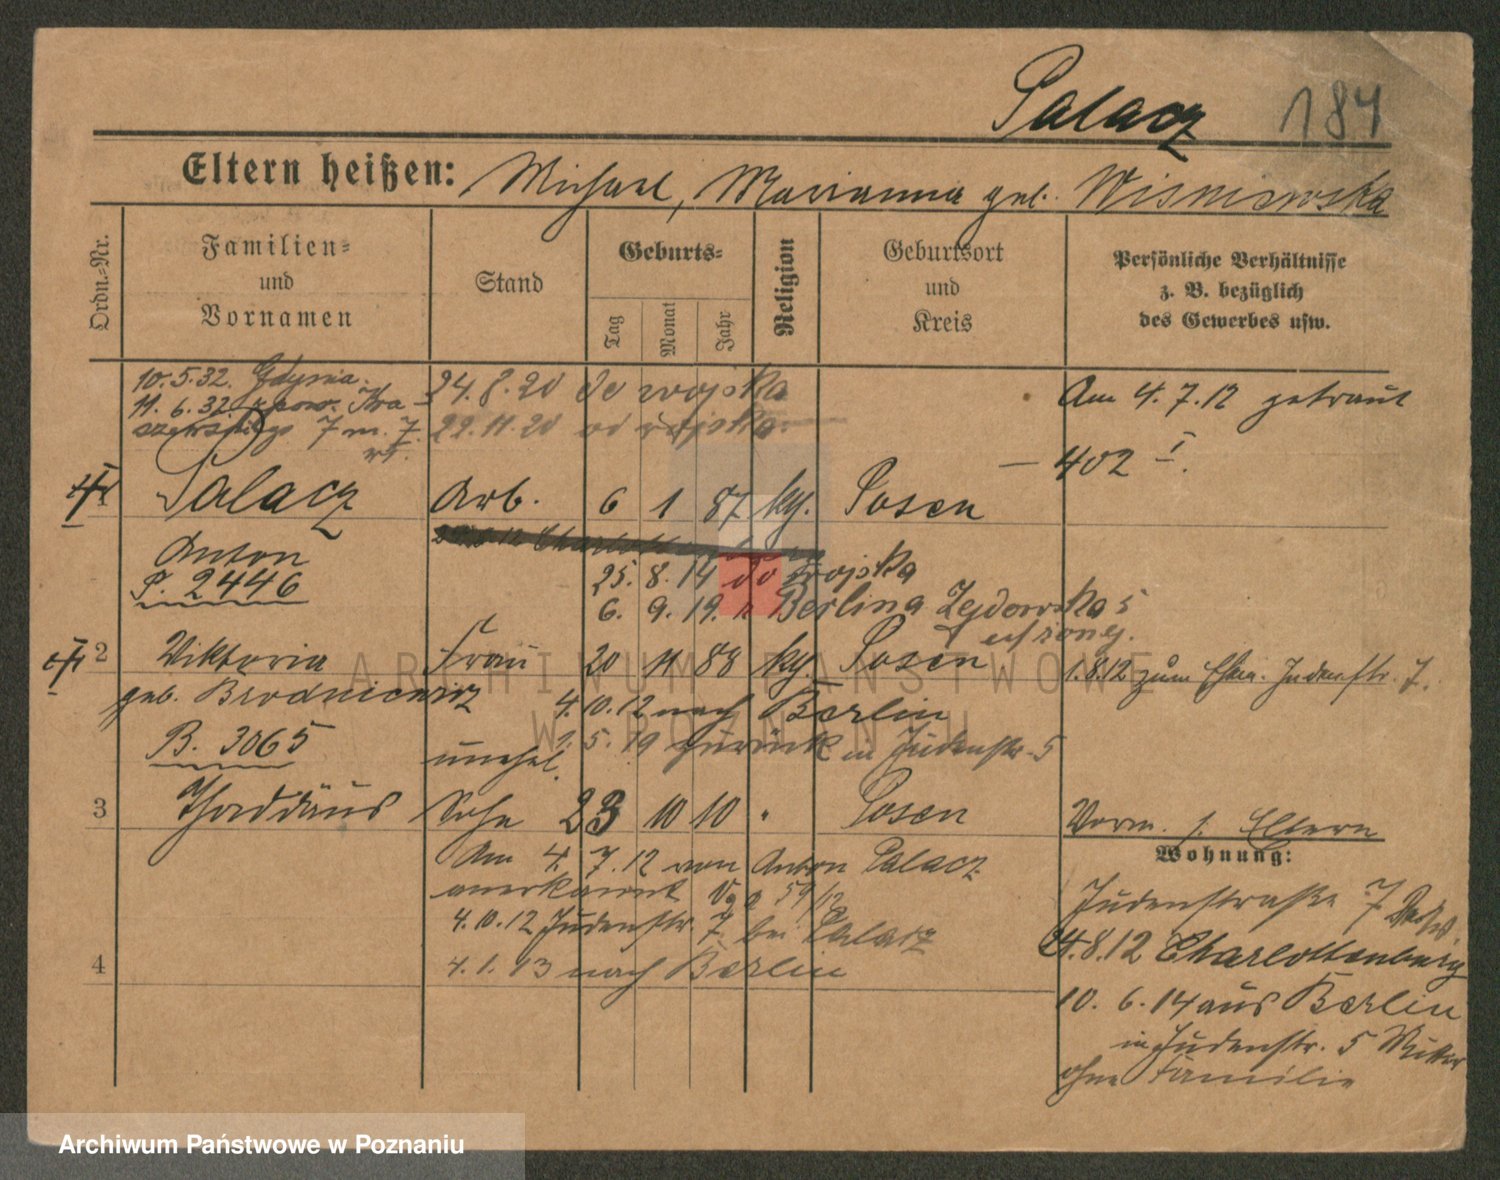 Palacz 184
Eltern heißen: Michael, Marianna geb. Wisniewska
Ordn.=Nr.
Familien=
und
Vornamen
Stand
Geburts=
Tag
Monat
Jahr
Religion
Geburtsort
und
Kreis
Persönliche Verhältnisse
z. B. bezüglich
des Gewerbes usw.
10.5.32. Gdynia. 24.8.20 do wojska Am 4.7.12 getraut
11.6.32.
7 m. 7. 22.11.20 od wojska.
— 402 I.
1 Palacz Arb. 6 1 87 kg. Posen
Anton
25. 8. 14 do wojska
P. 2446
6. 9. 19. z Berlina Żydowska 5
2 Viktoria Frau 20 11 88 kg. Posen 1.8.12 zum Ehem. Judenstr. 7.
geb. Brodniewicz 4.10.12 nach Berlin
B. 3065 5. 19 zurück in Judenstr. 5
unehel.
3 Thaddäus Sohn 23 10 10 " Posen Vorm. s. Eltern
Wohnung:
Am 4. 7. 12 von Anton Palacz
anerkannt 59/12
Judenstraße 7
4.10.12 Judenstr. 7 bei Palacz
24.8.12 Charlottenburg
4 4.1.13 nach Berlin
10. 6. 14 aus Berlin
in Judenstr. 5
ohne Familie
ARCHIWUM PAŃSTWOWE
W POZNANIU
Archiwum Państwowe w Poznaniu